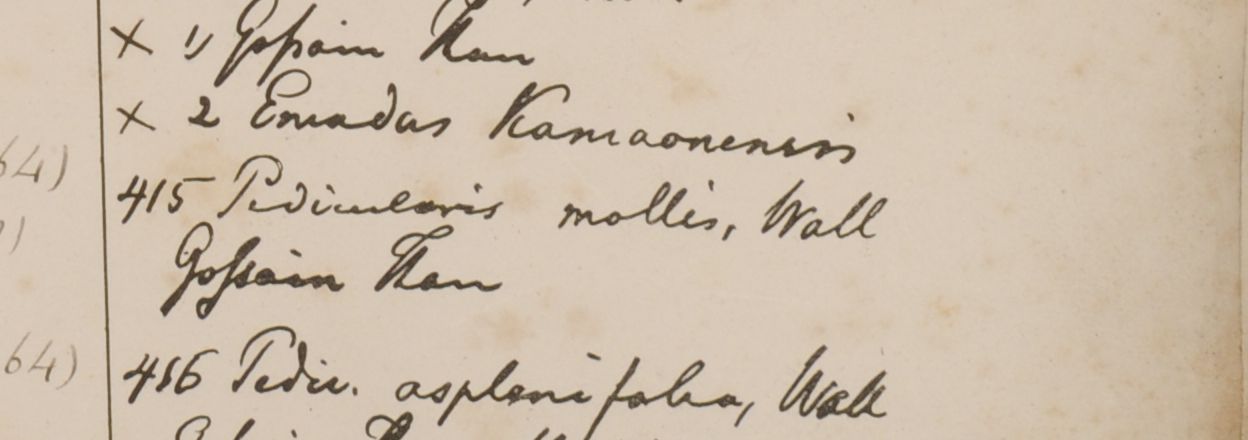 × 1) Gossain Than
× 2 Emadas Kamaonensis
64)
415 Pedicularis mollis, Wall
Gossain Than
64)
416 Pedic. asplenifolia, Wall